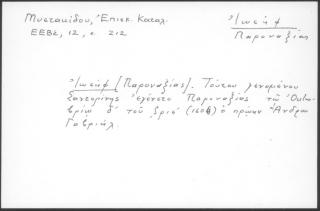 Μυστακίδου, Ἐπισκ. Καταλ.
ΕΕΒΣ, 12, σ. 212
Ἰωσὴφ
Παροναξίας
Ἰωσὴφ [Παροναξίας]. Τούτου γενομένου
Σαντορίνης ἐγένετο Παροναξίας τῷ Ὀκτω-
βρίῳ δ' τοῦ (1606) ὁ πρώην Ἄνδρου
Γαβριήλ.